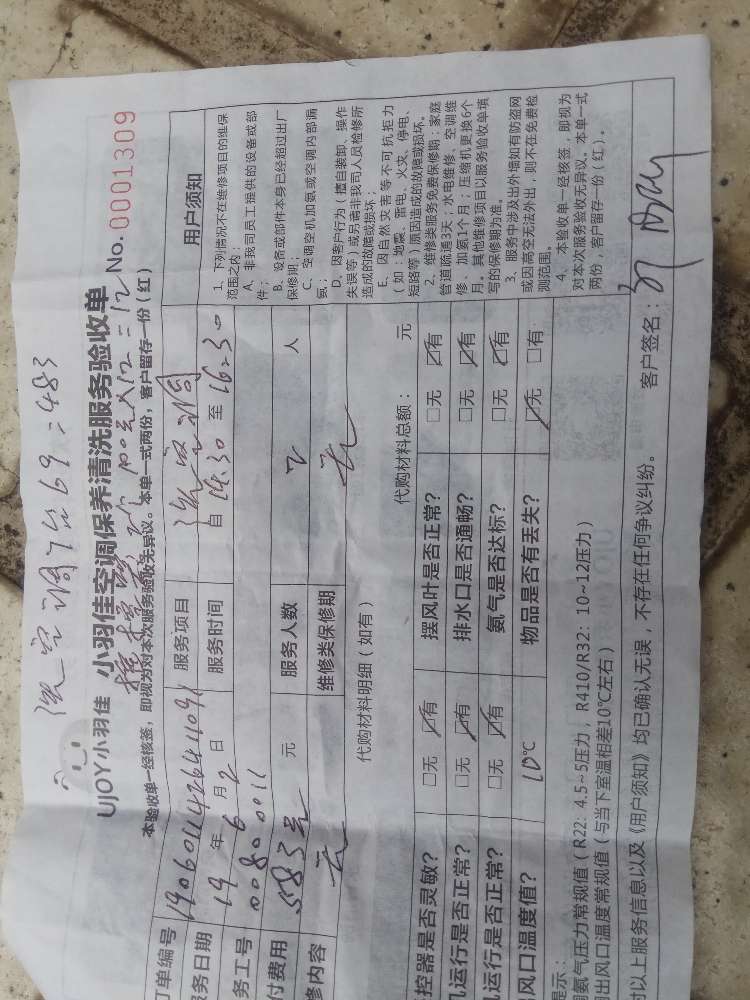 洗空调7台69=483
UJOY小羽佳 小羽佳空调保养清洗服务验收单 No. 0001309
本验收单一经核签，即视为对本次服务验收无异议。本单一式两份，客户留存一份（红）
订单编号 服务项目 洗空调 用户须知
服务日期 19 年 6 月 2 日 服务时间 自 至 16:30
务工号 00800011
付费用 583元 元 服务人数 2 人
修内容 无 维修类保修期 无
代购材料明细（如有） 代购材料总额： 元
控器是否灵敏？ □无 ☑有 摆风叶是否正常？ □无 ☑有
机运行是否正常？ □无 ☑有 排水口是否通畅？ □无 ☑有
机运行是否正常？ □无 ☑有 氨气是否达标？ □无 ☑有
出风口温度值？ 10℃ 物品是否有丢失？ ☑无 □有
1、下列情况不在维修项目的维保
范围之内：
A、非我司员工提供的设备或部
件；
B、设备或部件本身已经超过出厂
保修期；
C、空调空机加氨或空调内部漏
氨；
D、因客户行为（擅自装卸、操作
失误等）或另需非我司人员检修所
造成的故障或损坏；
E、因自然灾害等不可抗拒力
（如：地震、雷电、火灾、停电、
短路等）原因造成的故障或损坏。
2、维修类服务免费保修期：家庭
管道疏通3天；水电维修、空调维
修、加氨1个月；压缩机更换6个
月。其他维修项目以服务验收单填
写的保修期为准。
3、服务中涉及出外墙如有防盗网
或因高空无法外出，则不在免费检
测范围。
4、本验收单一经核签，即视为
对本次服务验收无异议，本单一式
两份，客户留存一份（红）。
提示：
氨气压力常规值（R22：4.5~5压力，R410/R32：10~12压力）
出风口温度常规值（与当下室温相差10℃左右）
对以上服务信息以及《用户须知》均已确认无误，不存在任何争议纠纷。 客户签名：